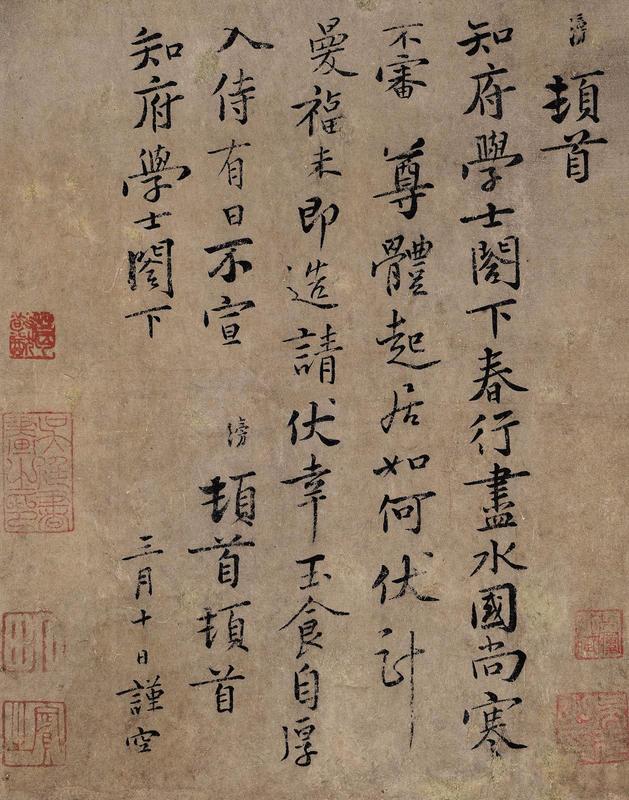 滂頓首
知府學士閣下春行盡水國尚寒
不審 尊體起居如何伏計
曼福未即造請伏幸玉食自厚
入侍有日不宣 滂頓首頓首
知府學士閣下
三月十日謹空